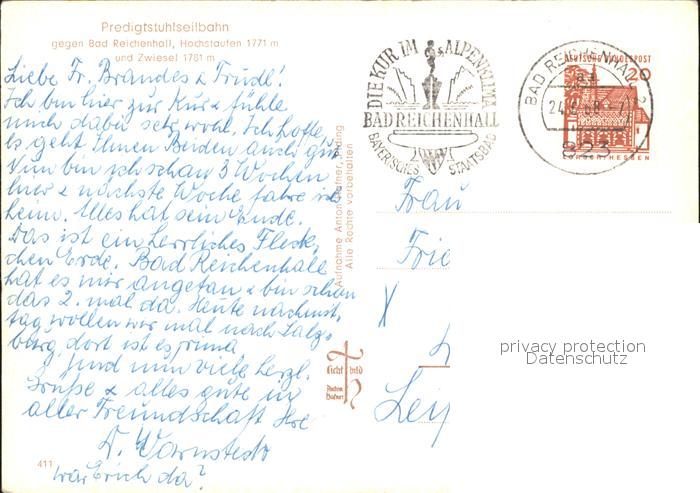 Predigtstuhlseilbahn
gegen Bad Reichenhall, Hochstaufen 1771 m
und Zwiesel 1781 m
Liebe Fr. Brandes & Trudl!
Ich bin hier zur Kur & fühle
mich dabei sehr wohl. Ich hoffe,
es geht Ihnen Beiden auch gut.
Nun bin ich schon 3 Wochen
hier & nächste Woche fahre ich
heim. Alles hat sein Ende.
Das ist ein herrliches Fleck-
chen Erde. Bad Reichenhall
hat es mir angetan & bin schon
das 2. mal da. Heute nachmit-
tag wollen wir mal nach Salz-
burg, dort ist es prima.
Und nun viele herzl.
Grüße & alles gute in
aller Freundschaft Ihre
war Erich da?
411
Aufnahme Anton
Alle Rechte vorbehalten
Licht bild
DIE KUR IM ALPENKLIMA
BAD REICHENHALL
BAYERISCHES STAATSBAD
BAD REICHENHALL 2
823
DEUTSCHE BUNDESPOST
20
LORSCH/HESSEN
Frau
Frie
Leip
privacy protection
Datenschutz